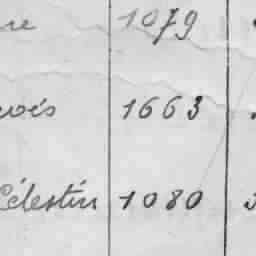 1079
1663
Célestin 1080